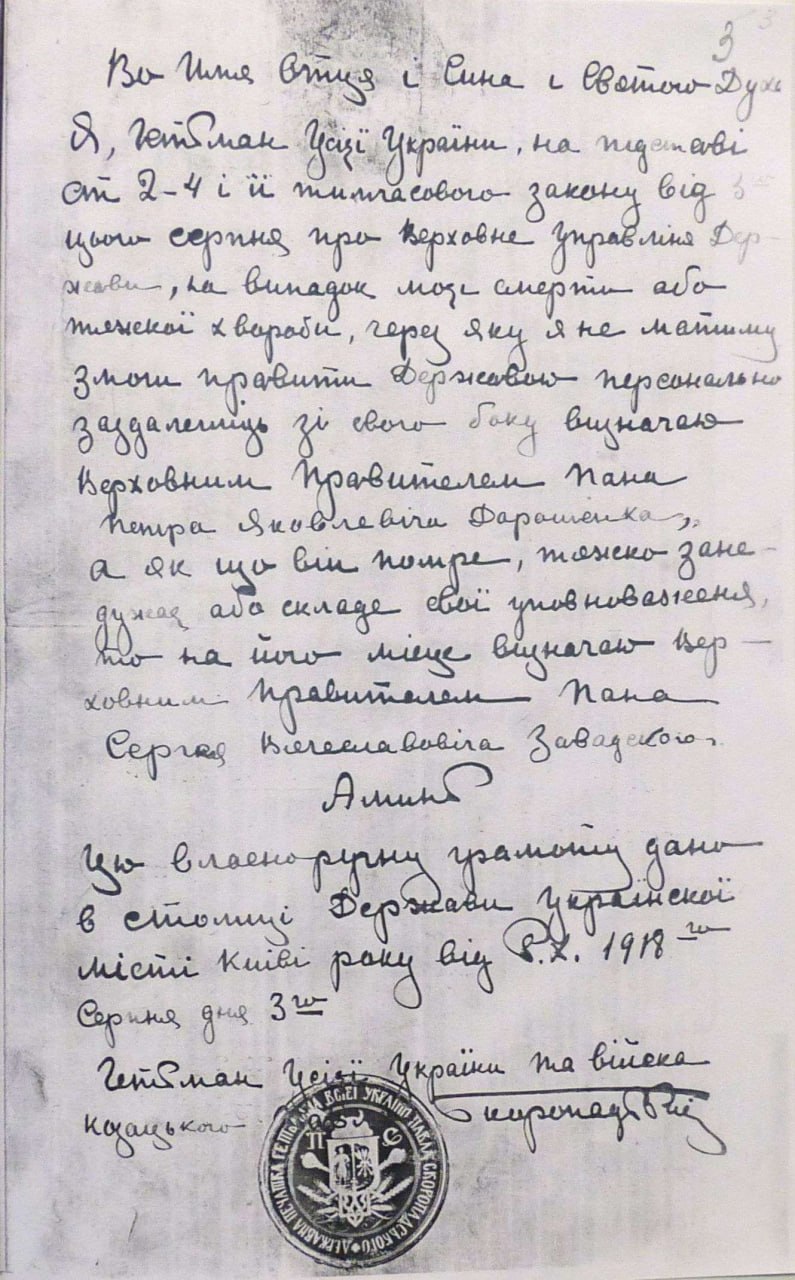 3
Во Имя Вітця і Сина і Святого Духа
Я, Гетьман Усієї України, на підставі
ст 2-4 і її тимчасового закону від 3
цього серпня про Верховне Управліня Дер-
жави, на випадок моєї смерти або
тяжкої хвороби, через яку я не матиму
змоги правити Державою персонально
заздалегідь зі свого боку визначаю
Верховним Правителем Пана
Петра Яковлевіча Дорошенка,
а як що він помре, тяжко зане-
дужає або складе свої уповноваженя,
то на його місце визначаю Вер-
ховним Правителем Пана
Сергея Вячеславовіча Завадского.
Аминь
Цю власноручну грамоту дано
в столиці Держави Українскої
місті Київі року від Р.Х. 1918го
Серпня дня 3го
Гетьман Усієї України та війска
козацького
Скоропадський
ДЕРЖАВНА ПЕЧАТКА ГЕТЬМАНА ВСІЄЇ УКРАЇНИ ПАВЛА СКОРОПАДСЬКОГО
П С